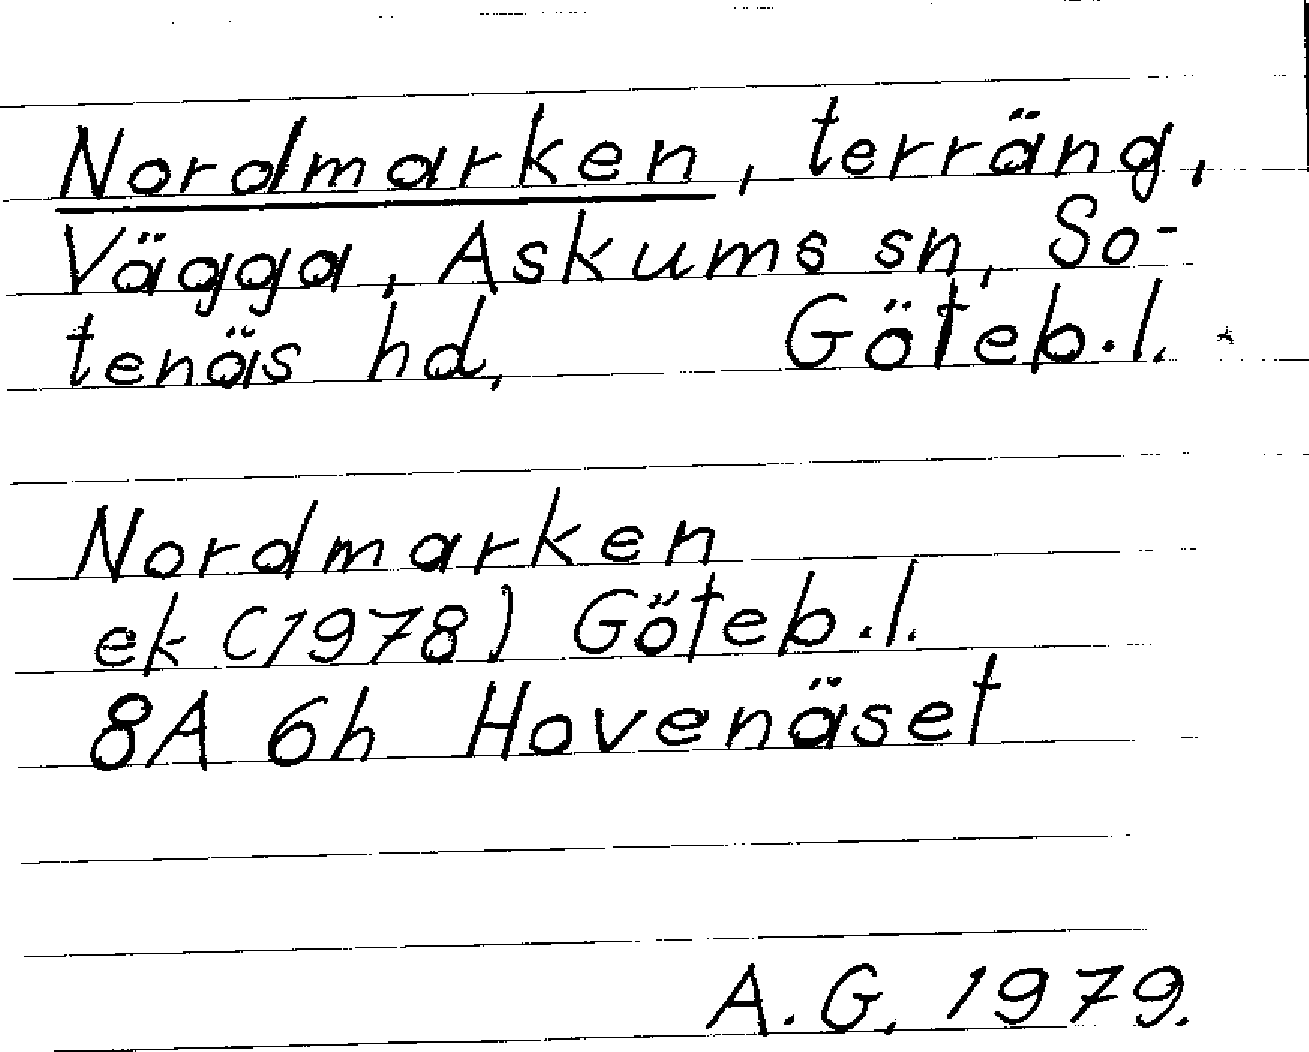 Nordmarken, terräng,
Vägga, Askums sn, So-
tenäs hd, Göteb.l.
Nordmarken
ek (1978) Göteb.l.
8A 6h Hovenäset
A.G. 1979.